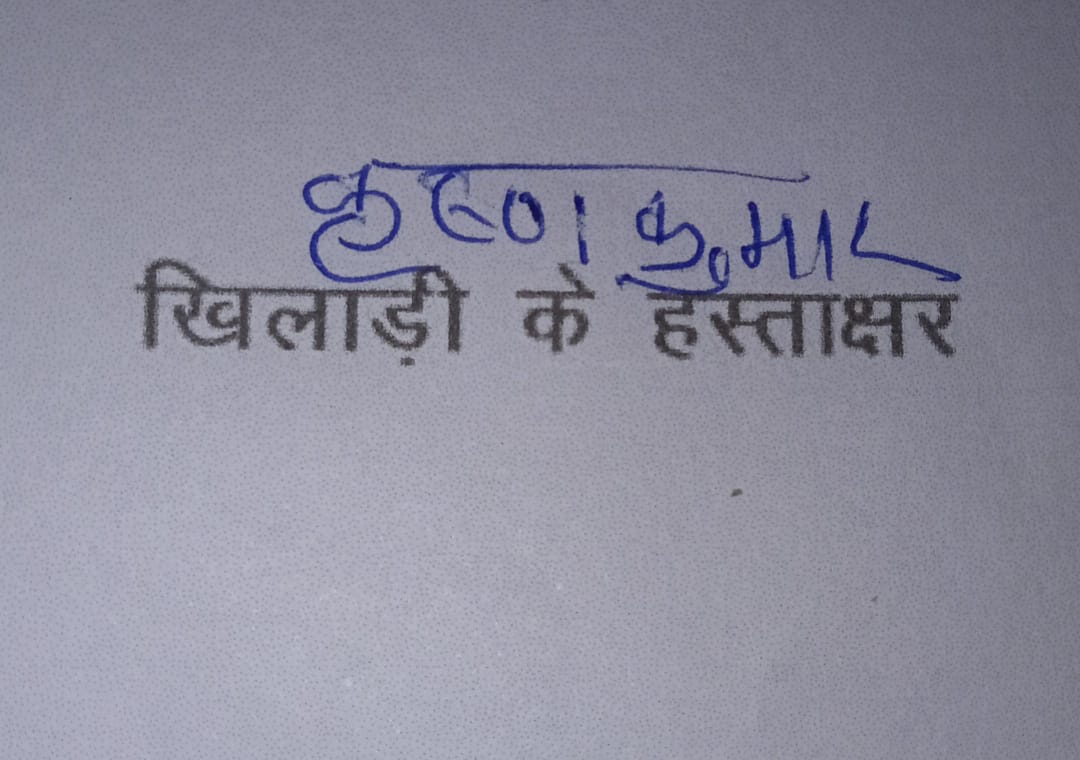 कृष्ण कुमार
खिलाड़ी के हस्ताक्षर